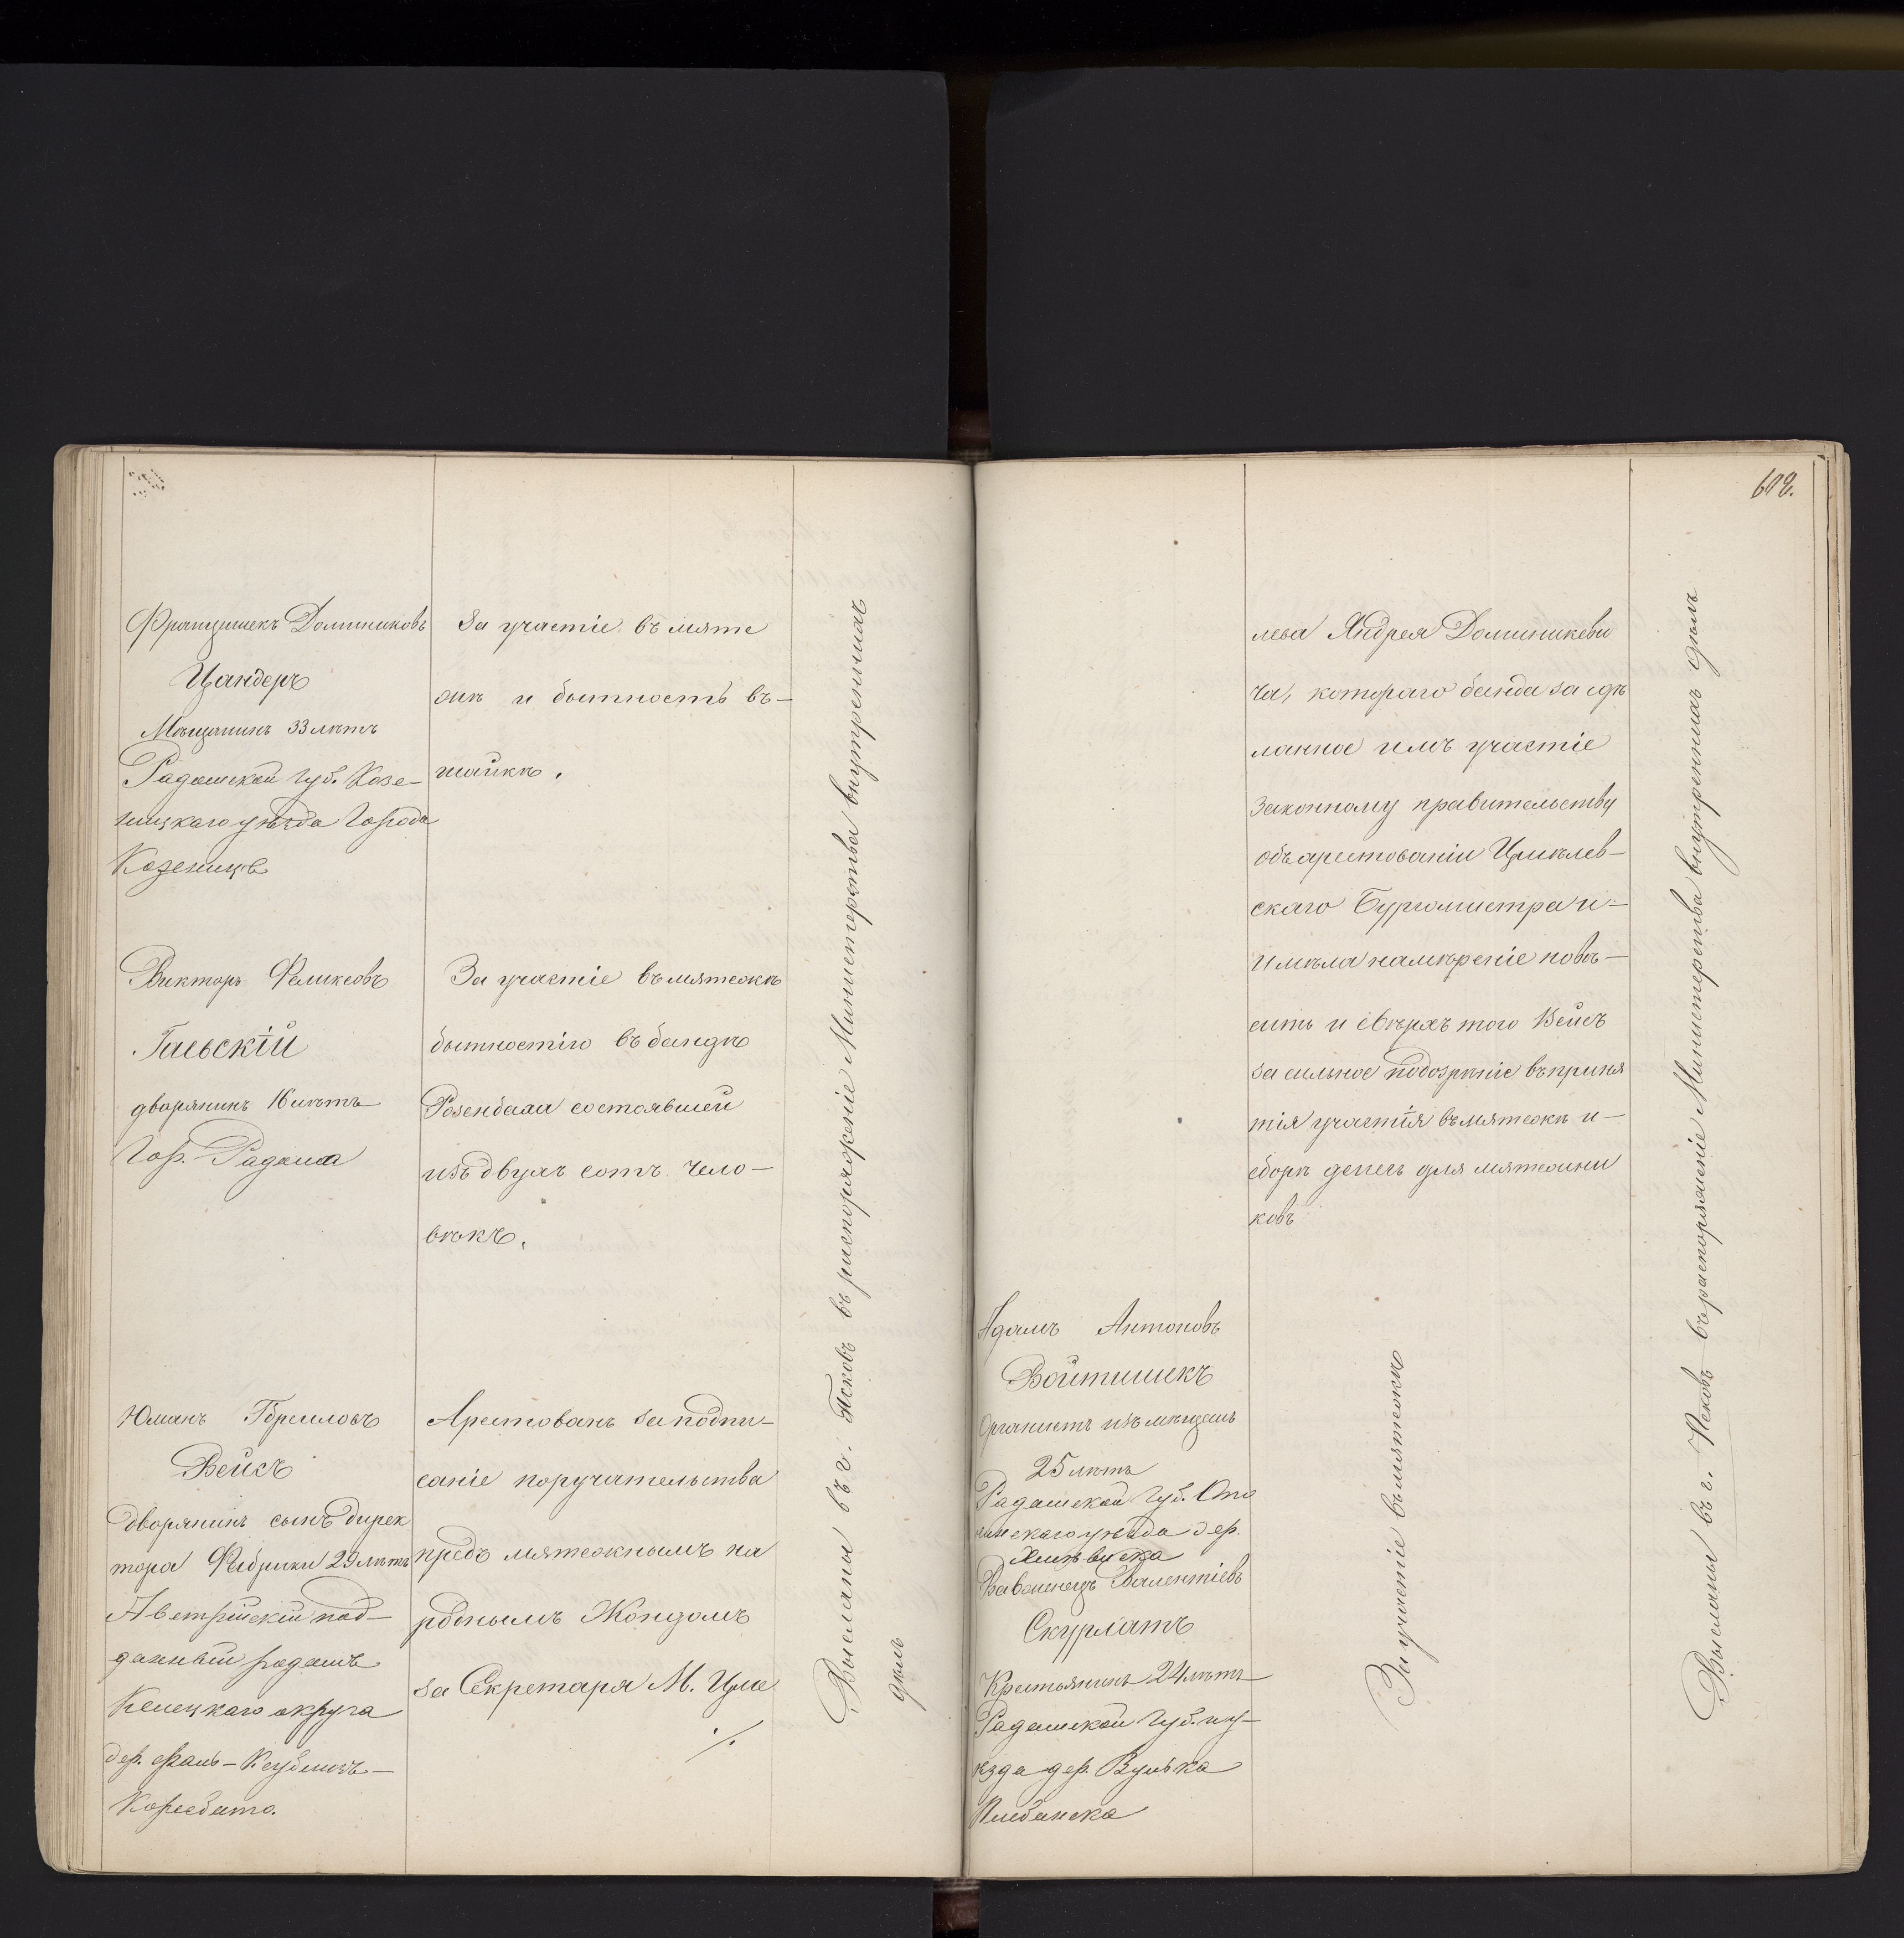 Францишекъ Доминиковъ
Цандеръ
Мѣщанинъ 33 лѣтъ
Радомской губ. Козе-
ницкаго уѣзда Города
Козеницъ
За участіе въ мяте
жѣ и бытность въ-
шайкѣ.
Викторъ Феликсовъ
Гаевскій
дворянинъ 16 лѣтъ
Гор. Радома
За участіе въ мятежѣ
бытностію въ бандѣ
Розенбаха состоявшей
изъ двухъ сотъ чело-
вѣкъ.
Вейсъ
дворянинъ сынъ дирек
тора Фабрики 29 лѣтъ
Австрійскій под-
данный родомъ
Келецкаго округа
дер.
Арестованъ за подпи-
саніе поручательства
предъ мятежнымъ на
роднымъ Жондомъ
за Секретаря М. Цме
./.
Высланы въ г. Псковъ въ распоряженіе Министерства внутреннихъ
дѣлъ
602.
лева Андрея Доминикеви
ча, котораго банда за сдѣ
ланное имъ участіе
законному правительству
объ арестованіи Цмѣлев-
скаго Бургомистра и-
имѣла намѣреніе повѣ-
сить и сверхъ того Вейсъ
за сильное подозрѣніе въ приня
тія участія въ мятежѣ и-
сборѣ денегъ для мятежни
ковъ
Адамъ Антоновъ
Войтишекъ
Органистъ изъ мѣщанъ
25 лѣтъ
Радомской Губ. Опо
чинскаго уѣзда дер.
Валентіевъ
Скурлатъ
Крестьянинъ 24 лѣтъ
Радомской Губ. и у-
ѣзда дер. Вулька
За участіе въ мятежѣ
Высланы въ г. Псковъ въ распоряженіе Министерства внутреннихъ дѣлъ